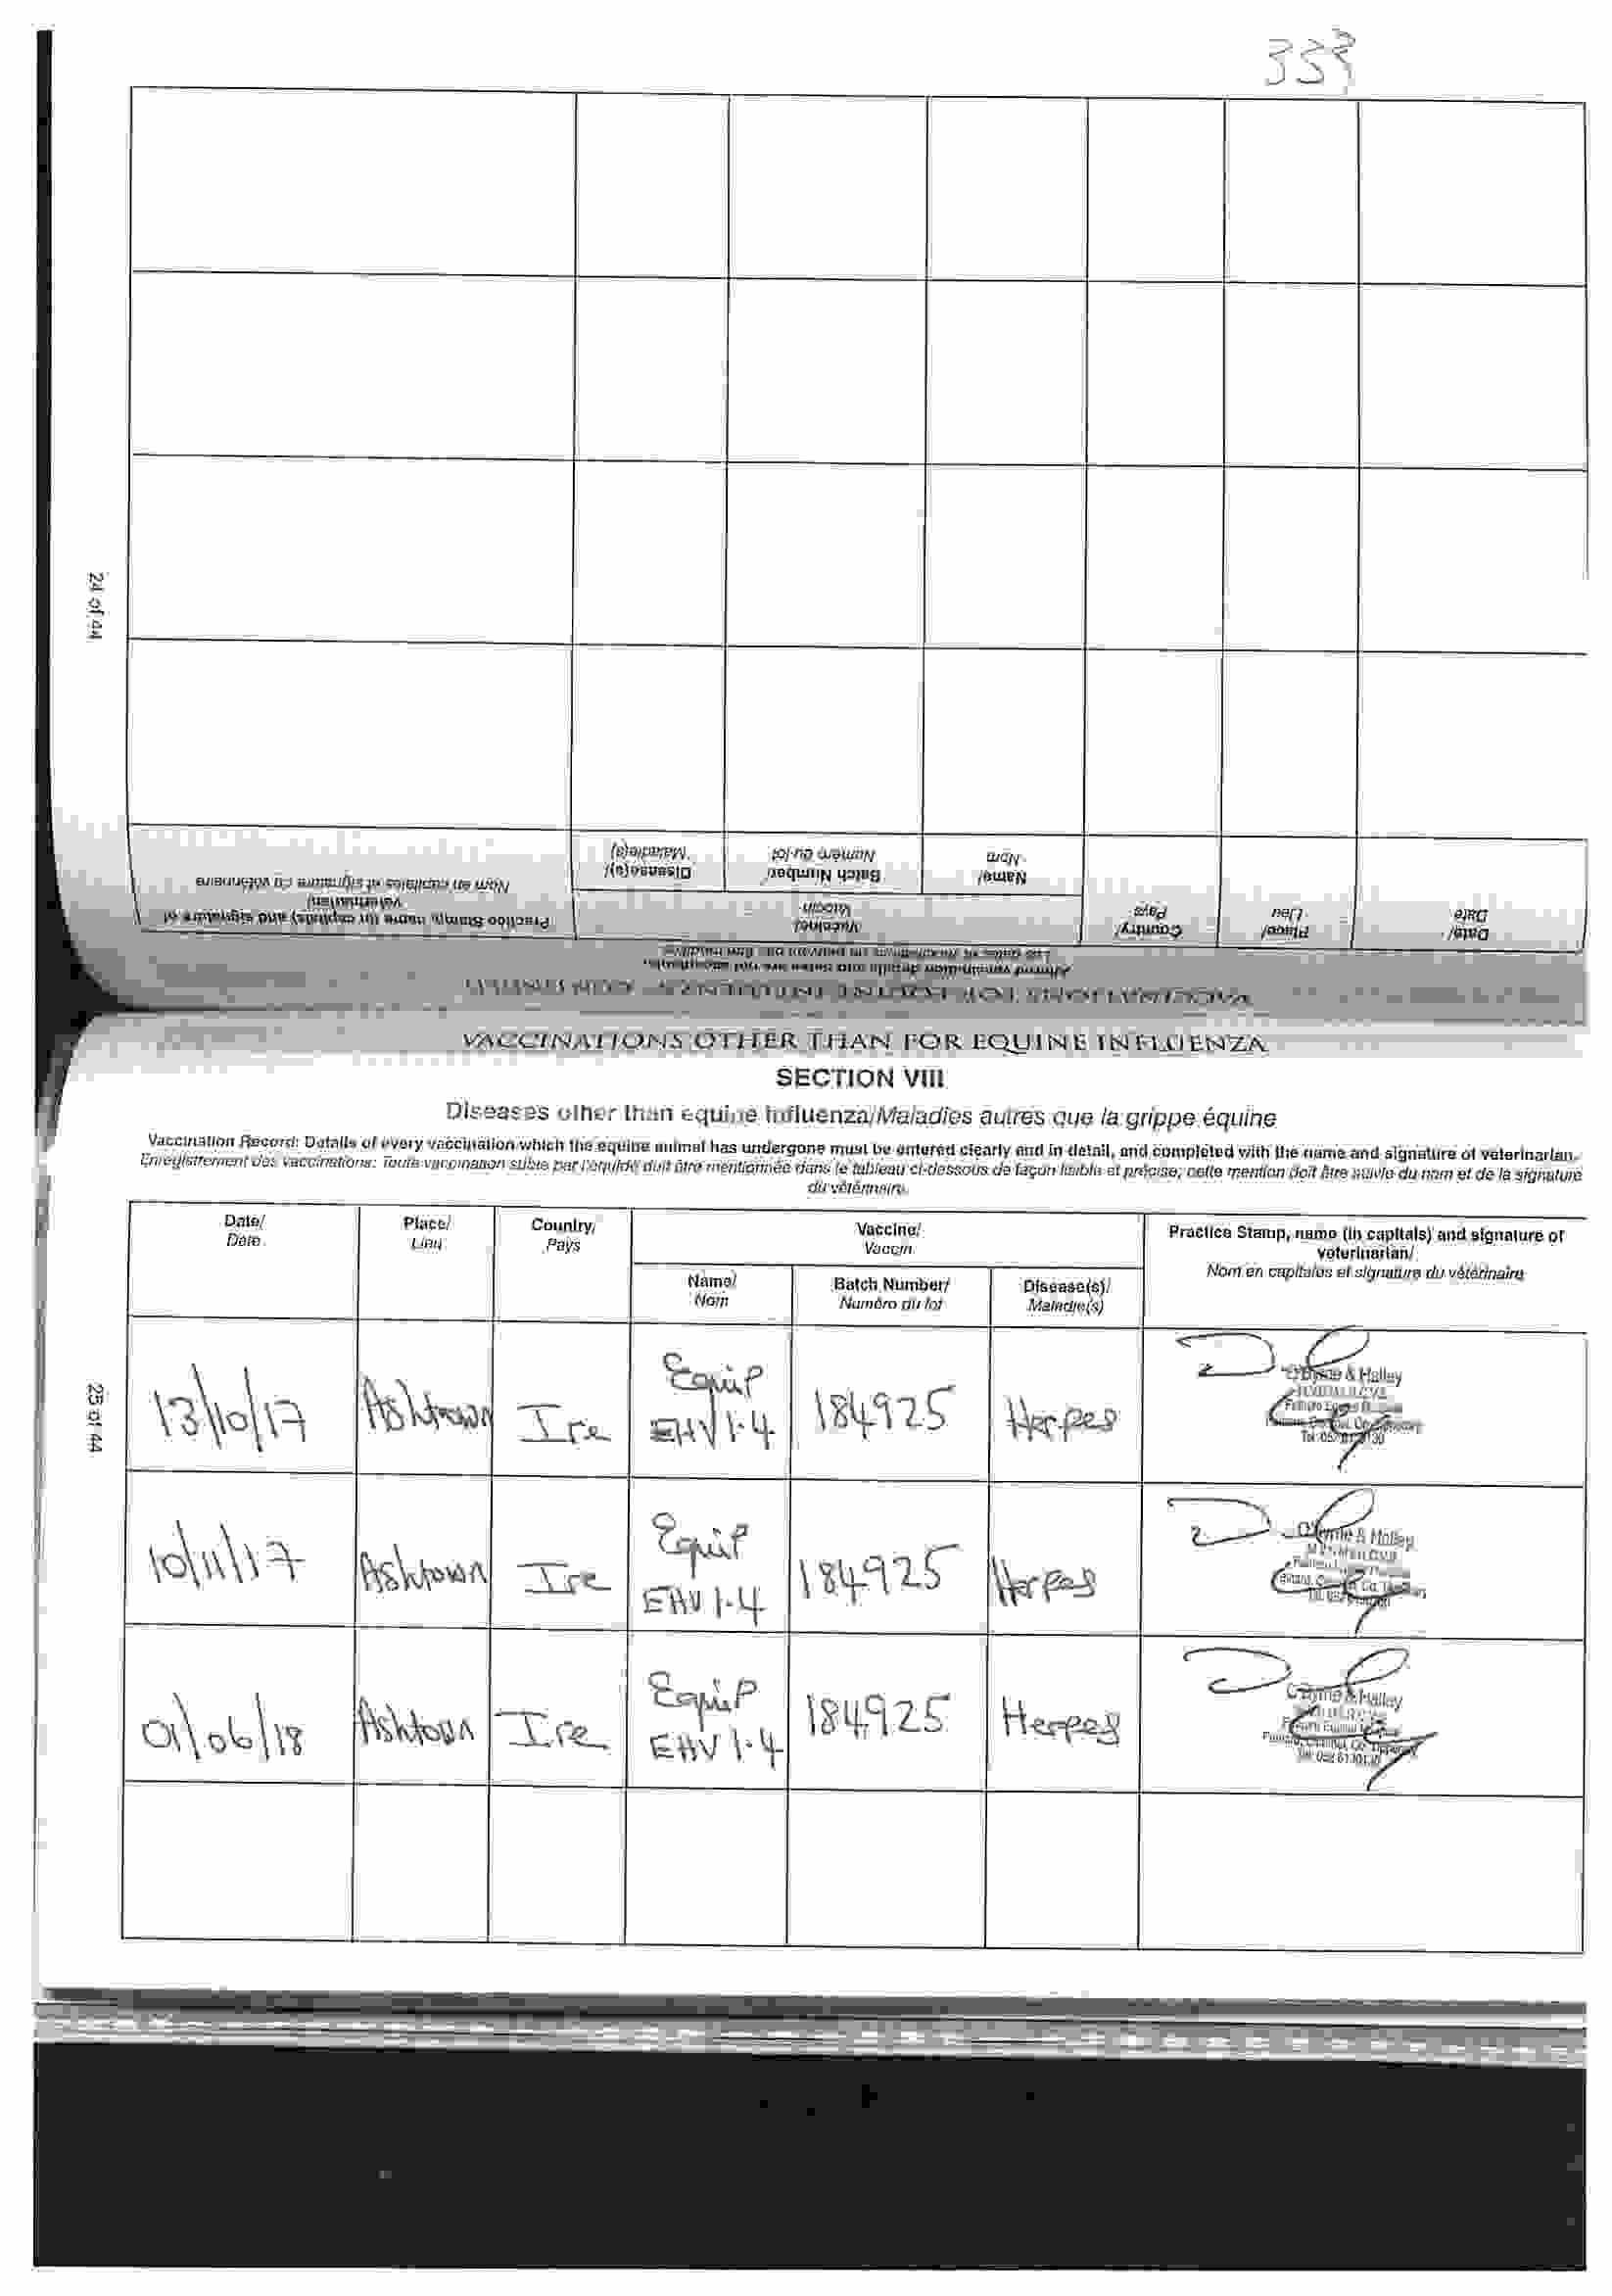 353
24 of 44
Practice Stamp, name (in capitals) and signature of
veterinarian/
Nom en capitales et signature du vétérinaire
Vaccine/
Vaccin
Disease(s)/
Maladie(s)
Batch Number/
Numéro du lot
Name/
Nom
Country/
Pays
Place/
Lieu
Date/
Date
VACCINATIONS OTHER THAN FOR EQUINE INFLUENZA
SECTION VIII
Diseases other than equine influenza/Maladies autres que la grippe équine
Vaccination Record: Details of every vaccination which the equine animal has undergone must be entered clearly and in detail, and completed with the name and signature of veterinarian.
Enregistrement des vaccinations: Toute vaccination subie par l'équidé doit être mentionnée dans le tableau ci-dessous de façon lisible et précise; cette mention doit être suivie du nom et de la signature
du vétérinaire
Date/
Date
Place/
Lieu
Country/
Pays
Vaccine/
Vaccin
Practice Stamp, name (in capitals) and signature of
veterinarian/
Nom en capitales et signature du vétérinaire
Name/
Nom
Batch Number/
Numéro du lot
Disease(s)/
Maladie(s)
25 of 44
13/10/17 Ashtown Ire Equip EHV 1.4 184925 Herpes
& Halley
10/11/17 Ashtown Ire Equip EHV 1.4 184925 Herpes
& Halley
01/06/18 Ashtown Ire Equip EHV 1.4 184925 Herpes
& Halley